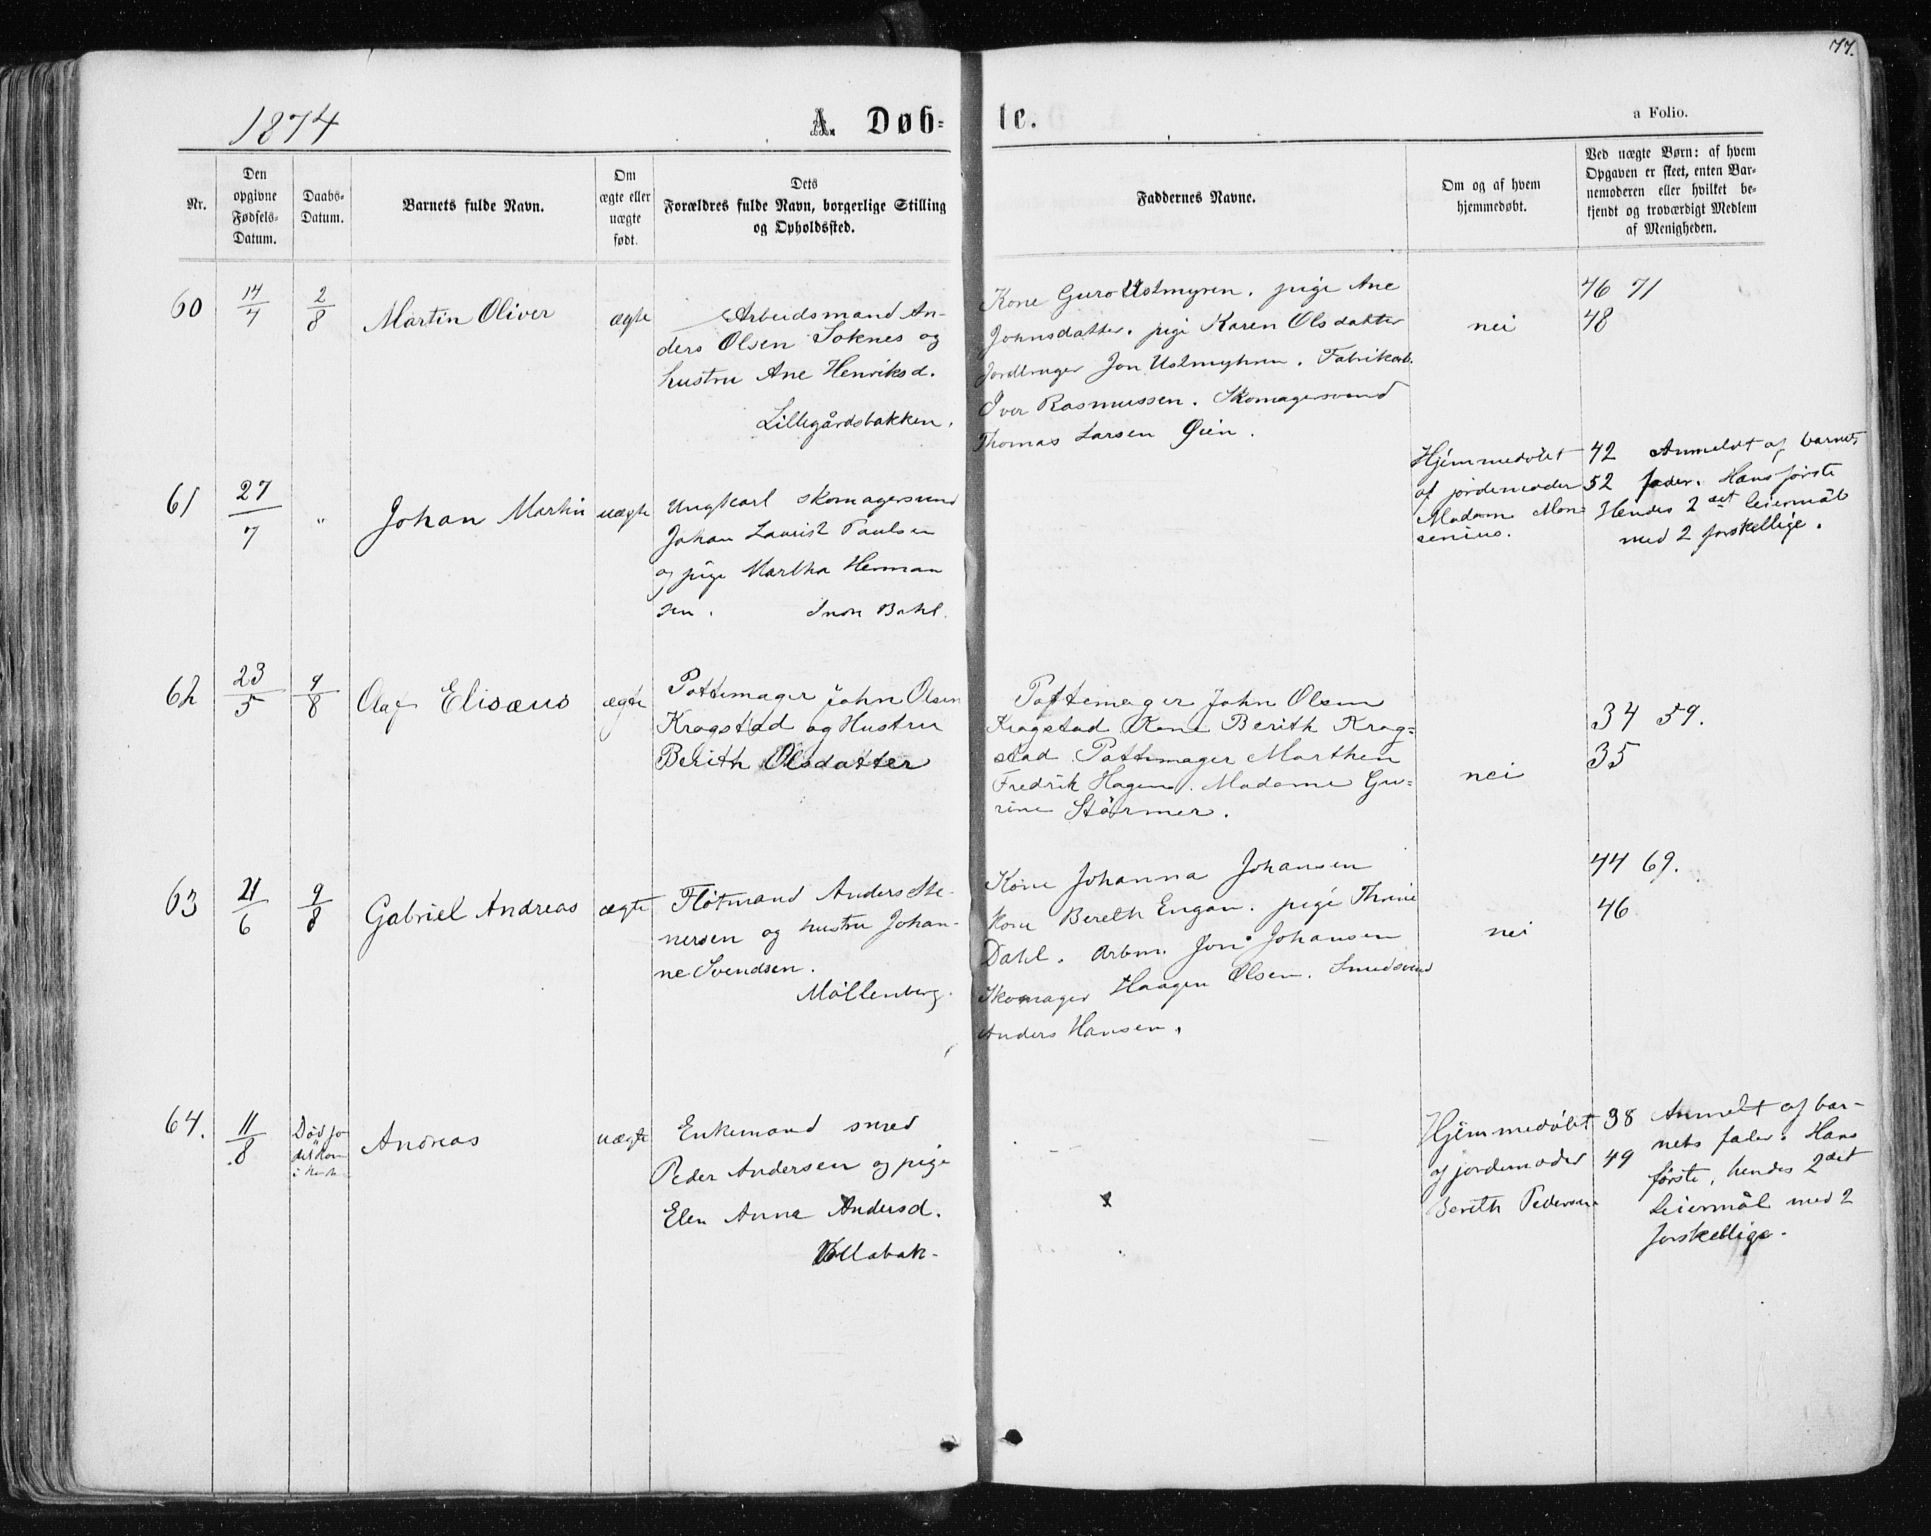 77.
1874
A. Døb-
te.
a Folio.
Nr.
Den
opgivne
Fødsels-
Datum.
Daabs-
Datum.
Barnets fulde Navn.
Om
ægte eller
uægte
født.
Dets
Forældres fulde Navn, borgerlige Stilling
og Opholdssted.
Faddernes Navne.
Om og af hvem
hjemmedøbt.
Ved uægte Børn: af hvem
Opgaven er skeet, enten Bar-
nemoderen eller hvilket be-
kjendt og troværdigt Medlem
af Menigheden.
60
14/7
2/8
Martin Oliver
ægte
Arbeidsmand An-
ders Olsen Soknes og
hustru Ane Henriksd.
Lillegårdsbakken.
Kone Guro Ustmyren. pige Ane
Johnsdatter. pige Karen Olsdatter
Jordbruger Jon Ustmyhren. Fabrikarb.
Iver Rasmussen. Skomagersvend
Thomas Larsen Øien.
nei
46 71
48
61
27/7
"
Johan Martin
uægte
Ungkarl skomagersvend
Johan Laurist Paulsen
og pige Martha Herman
sen. Bakl.
Hjemmedøbt
af jordemoder
Madam Mon
senius.
42 Anmeldt af barnets
52 fader. Hans første
Hendes 2det leiermål
med 2 forskellige.
62
23/5
9/8
Olaf Elisæus
ægte
Pottemager John Olsen
Kragstad og Hustru
Berith Olsdatter
Pottemager John Olsen
Kragstad Kone Berith Krag-
stad Pottemager Marthen
Fredrik Hagen. Madame Gu-
rine Störmer.
nei
34 59.
35
63
21/6
9/8
Gabriel Andreas
ægte
Flötmand Anders Ste-
nersen og hustru Johan-
ne Svendsen.
Möllenberg.
Kone Johanna Johansen
Kone Bereth Engan. pige Thrine
Dahl. Arbm. Jon Johansen
Skomager Haagen Olsen. Smedsvend
Anders Hansen.
nei
44 69.
46
64.
11/8
Död fo
det kom
Andreas
uægte
Enkemand smed
Peder Andersen og pige
Elen Anna Andersd.
Hjemmedöbt
af jordemoder
Berith Pedersen
38 Anmelt af bar-
49 nets fader. Hans
første, hendes 2det
Leiermål med 2
forskellige.